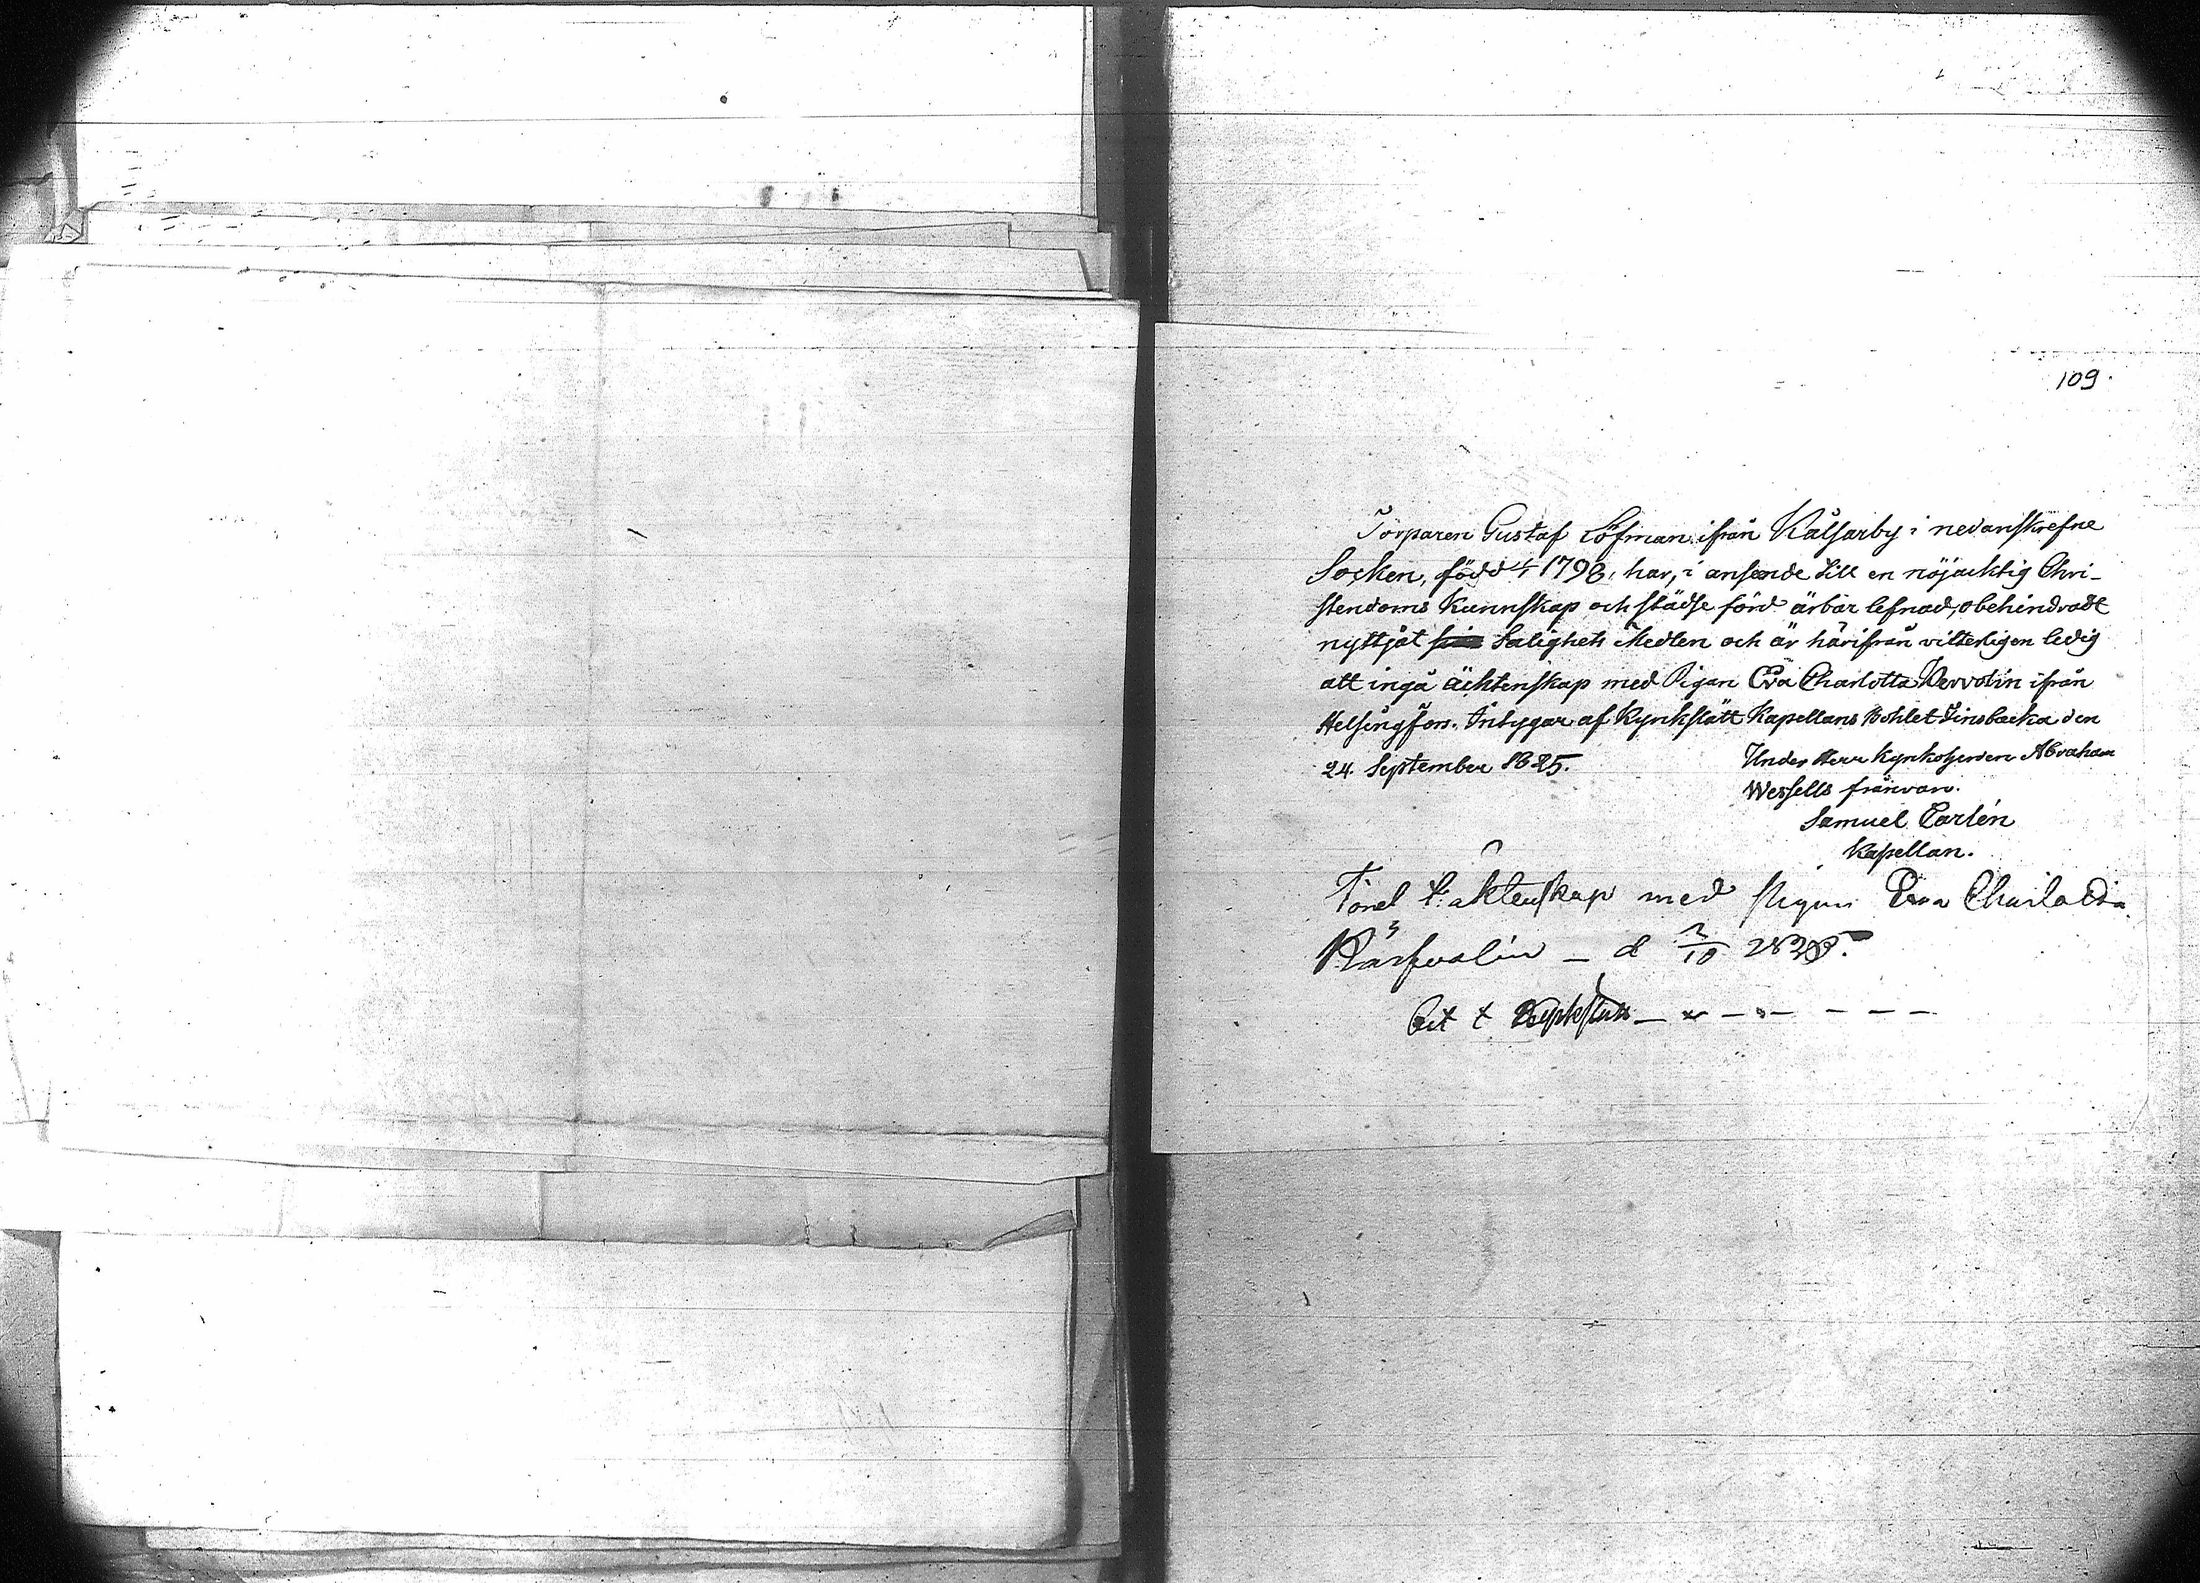 109.
Torparen Gustaf Löfman ifrån Kålsarby i nedanskrefne
Socken, född 4/1 1798, har, i anseende till en nöjacktig Chri-
stendoms Kunnskap och städse förd ärbar lefnad, obehindradt
nyttjat Salighets Medlen och är härifrån vitterligen ledig
att ingå äcktenskap med Pigan Eva Charlotta Kervolin ifrån
Helsingfors. Intygar af Kyrkslätt Kapellans Bohlet Finsbacka den
24. September 1825.
Under Herr Kyrkoherden Abraham
Wessells frånvaro.
Samuel Carlén
Kapellan.
med pigan Eva Charlotta
d
t Kyrkslätt